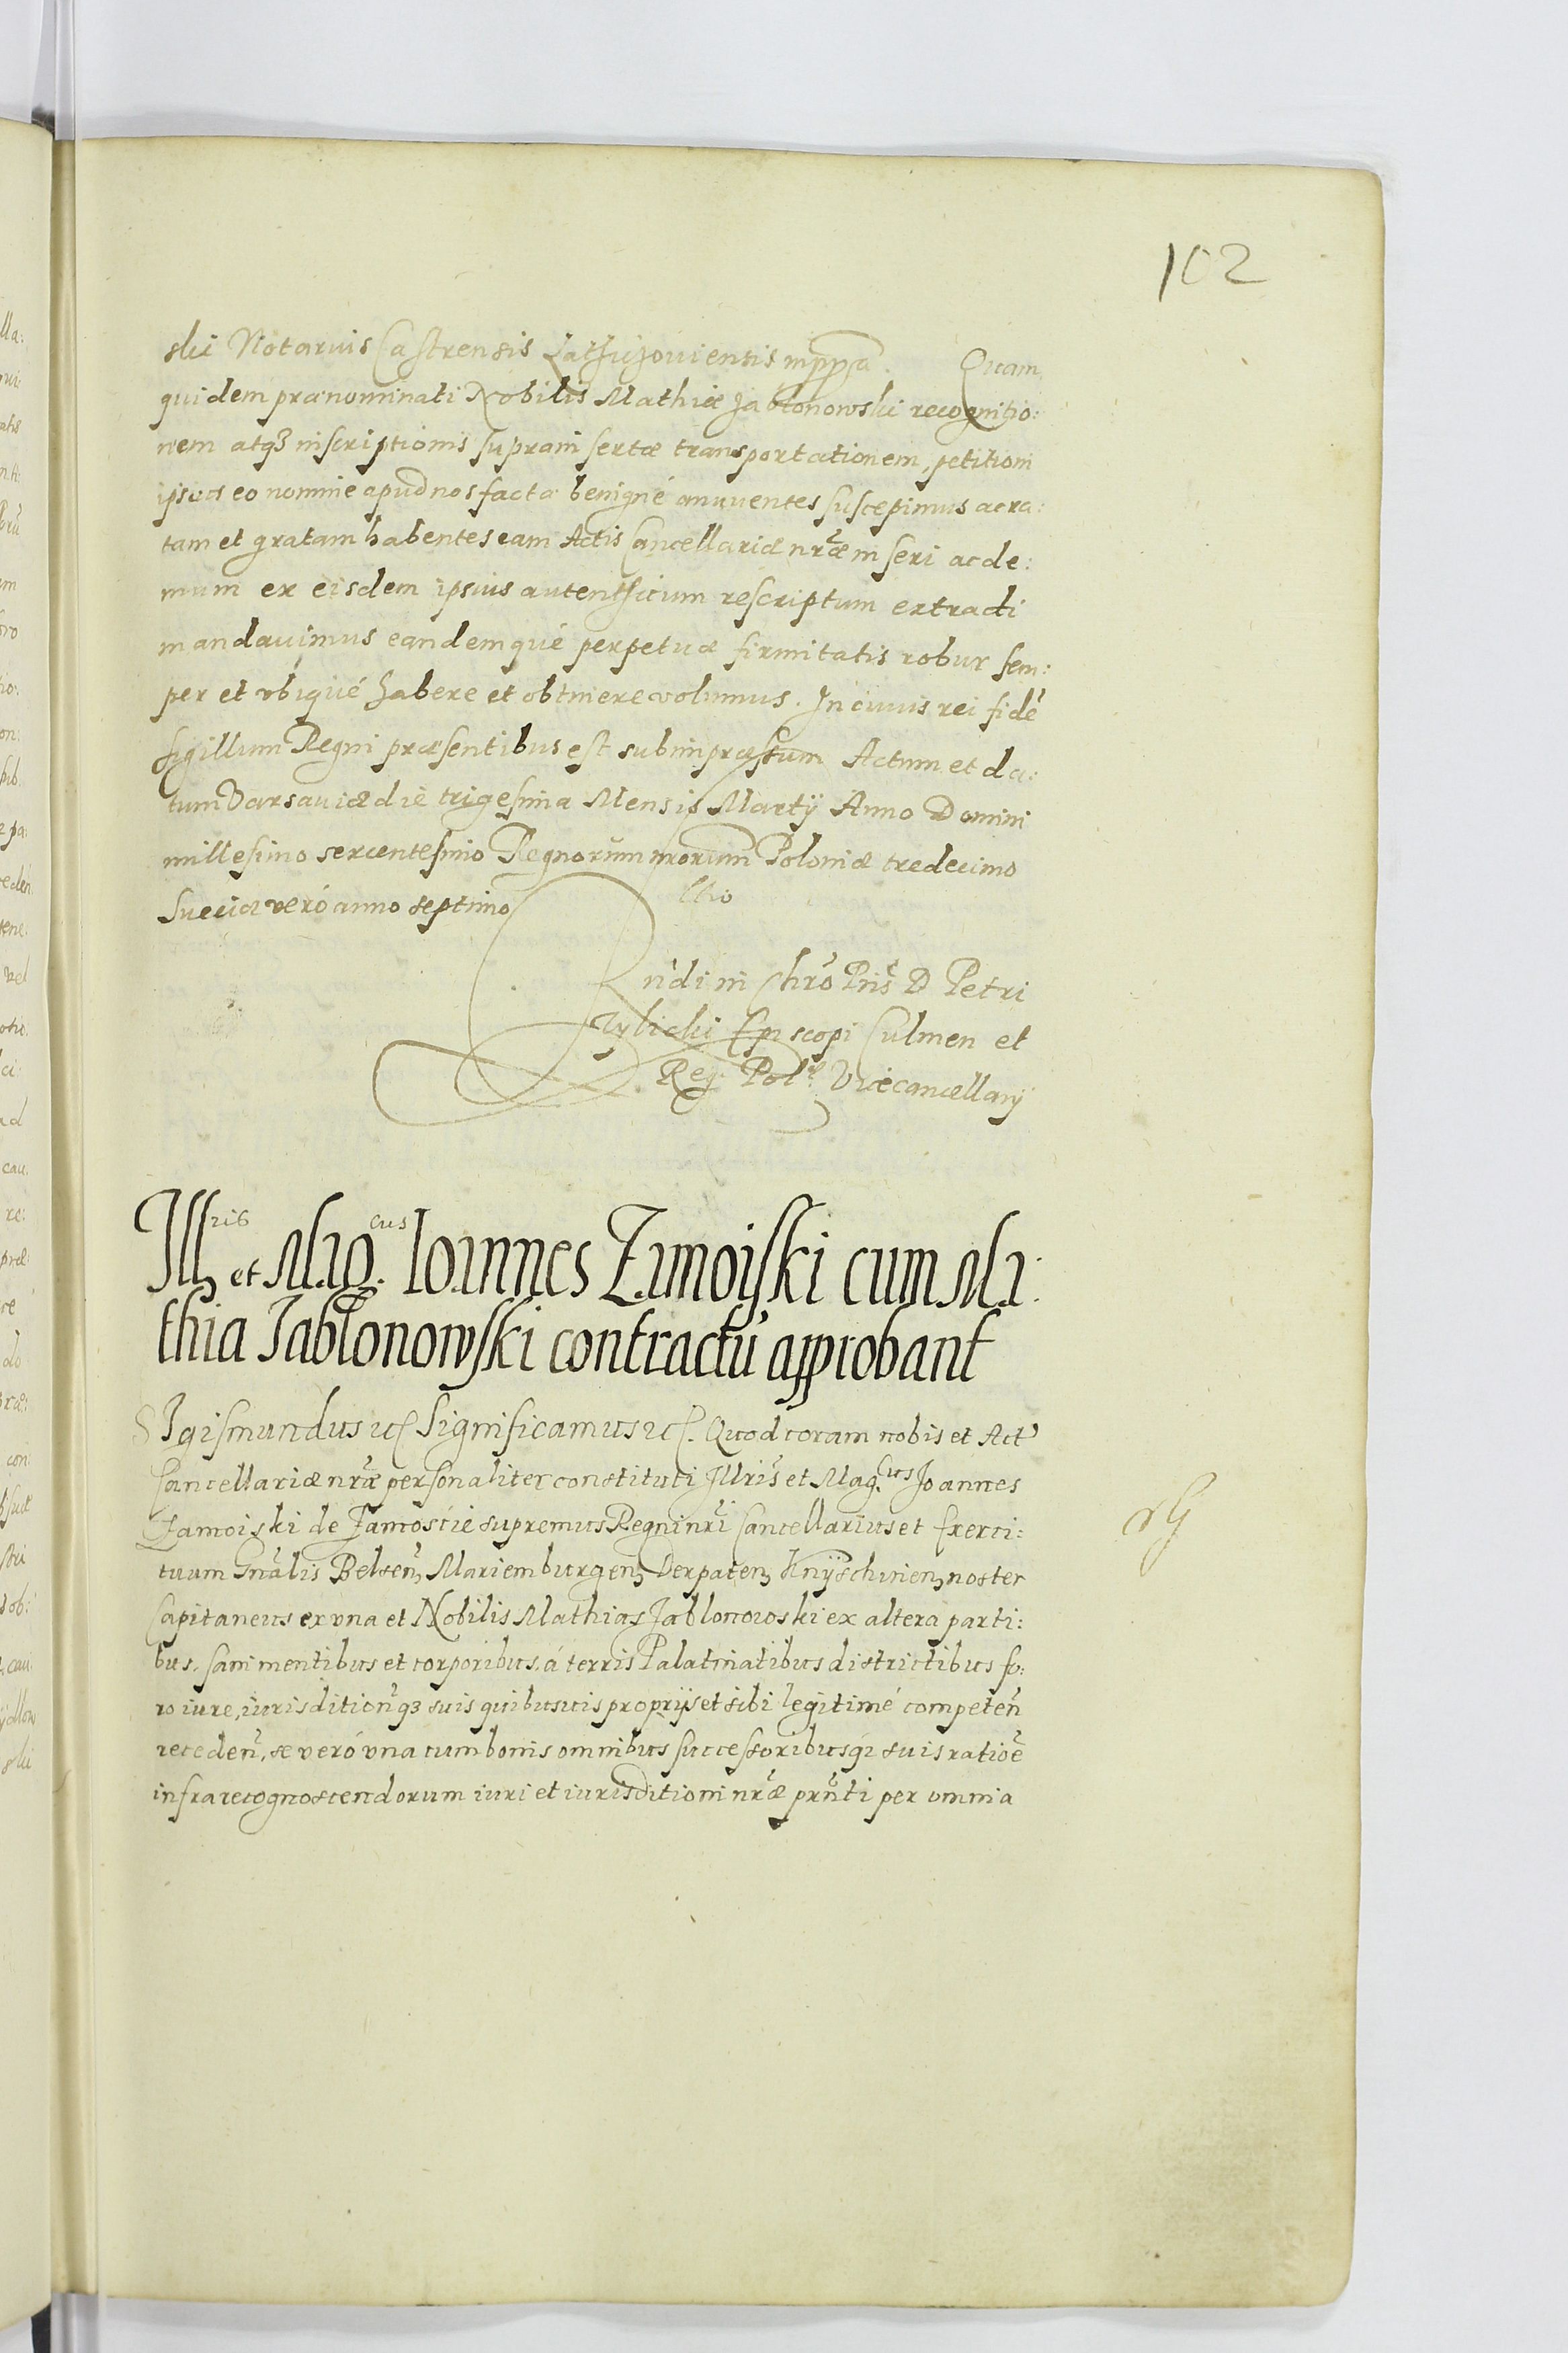 102
ski Notarius Castrensis Lathyczouiensis mppa. Quam
quidem prænominati Nobilis Mathiæ Jabłonowski recognitio:
nem atqȝ inscriptionis suprainsertæ transportationem, petitioni
ipsius eo nomine apud nos factæ benigné annuentes suscepimus ac ra:
tam et gratam habentes eam Actis Cancellariæ nr̃æ inseri ac de:
mum ex eisdem ipsius autenthicum rescriptum extradi
mandauimus eandemqué perpetuæ firmitatis robur sem:
per et vbiqué habere et obtinere volumus. In cuius rei fidẽ
sigillum Regni præsentibus est subimpræssum Actum et da:
tum Varsauiæ die trigesima Mensis Martij Anno Domini
millesimo sexcentesimo Regnorum nrorum Poloniæ tredecimo
Sueciæ veró anno septimo
Rndi in Chrõ Pris D Petri
Tylicki Episcopi Culmen et
Reg. Polæ Vicecancellarij
Illris et Mag.cus Ioannes Zamoiski cum Ma:
thia Jabłonowski contractũ approbant
Sigismundus ẽ Significamus ẽ. Quod coram nobis et Act
Cancellariæ nr̃æ personaliter constituti Illris et Mag.cus Joannes
Zamoiski de Zamoście supremus Regni nr̃i Cancellarius et Exerci:
tuum Gnãlis Belsenȝ Mariemburgenȝ Derpatenȝ Knijschinenȝ noster
Capitaneus ex vna et Nobilis Mathias Jablonowski ex altera parti:
bus, sani mentibus et corporibus, á terris Palatinatibus districtibus fo:
ro iure, iurisditionẽqȝ suis quibusuis proprijs et sibi legitimé competeñ
recedeñ, se veró vna cum bonis omnibus successoribusqȝ suis ratiõe
infrarecognoscendorum iuri et iurisditioni nr̃æ prñti per omnia